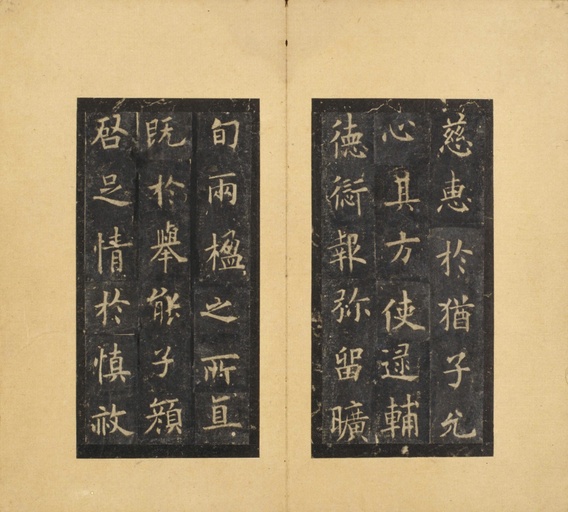 慈惠於猶子允
心其方使逯輔
德衒報弥留曠
旬兩楹之所直
既於舉能子顏
啓足情於慎敝